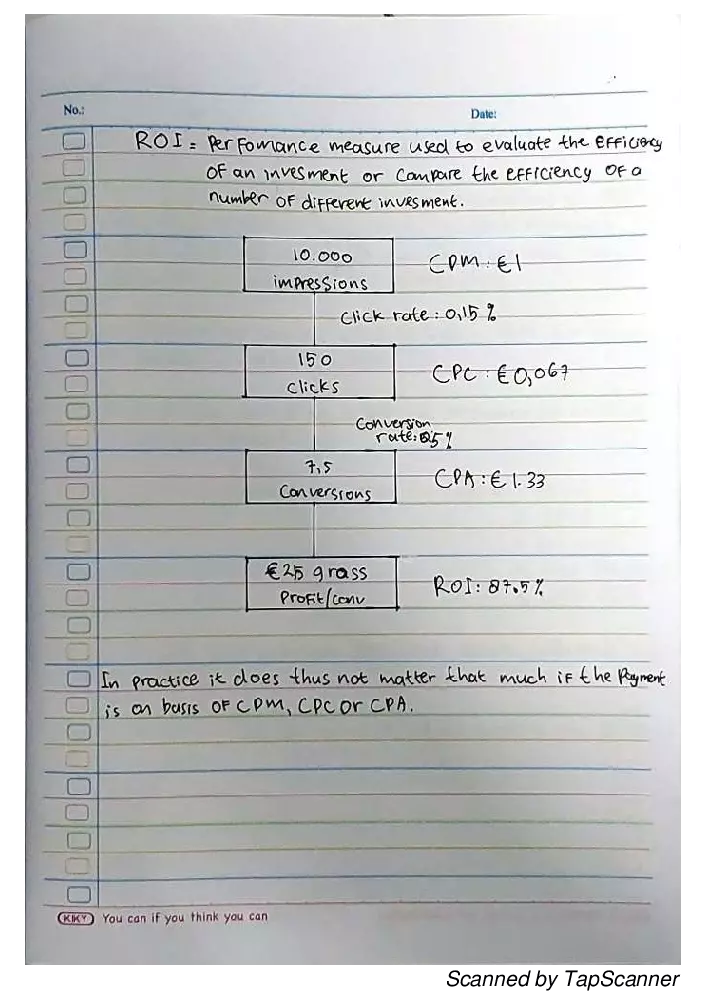 No.:
Date:
ROI = Performance measure used to evaluate the efficiency
of an invesment or compare the efficiency of a
number of different invesment.
10.000
impressions
CPM : €1
Click rate : 0,15 %
150
clicks
CPC : €0,067
Conversion
rate: 5 %
7,5
Conversions
CPA : € 1.33
€25 grass
Profit/conv
ROI : 87.5 %
In practice it does thus not matter that much if the Payment
is on basis of CPM, CPC or CPA.
KIKY You can if you think you can
Scanned by TapScanner